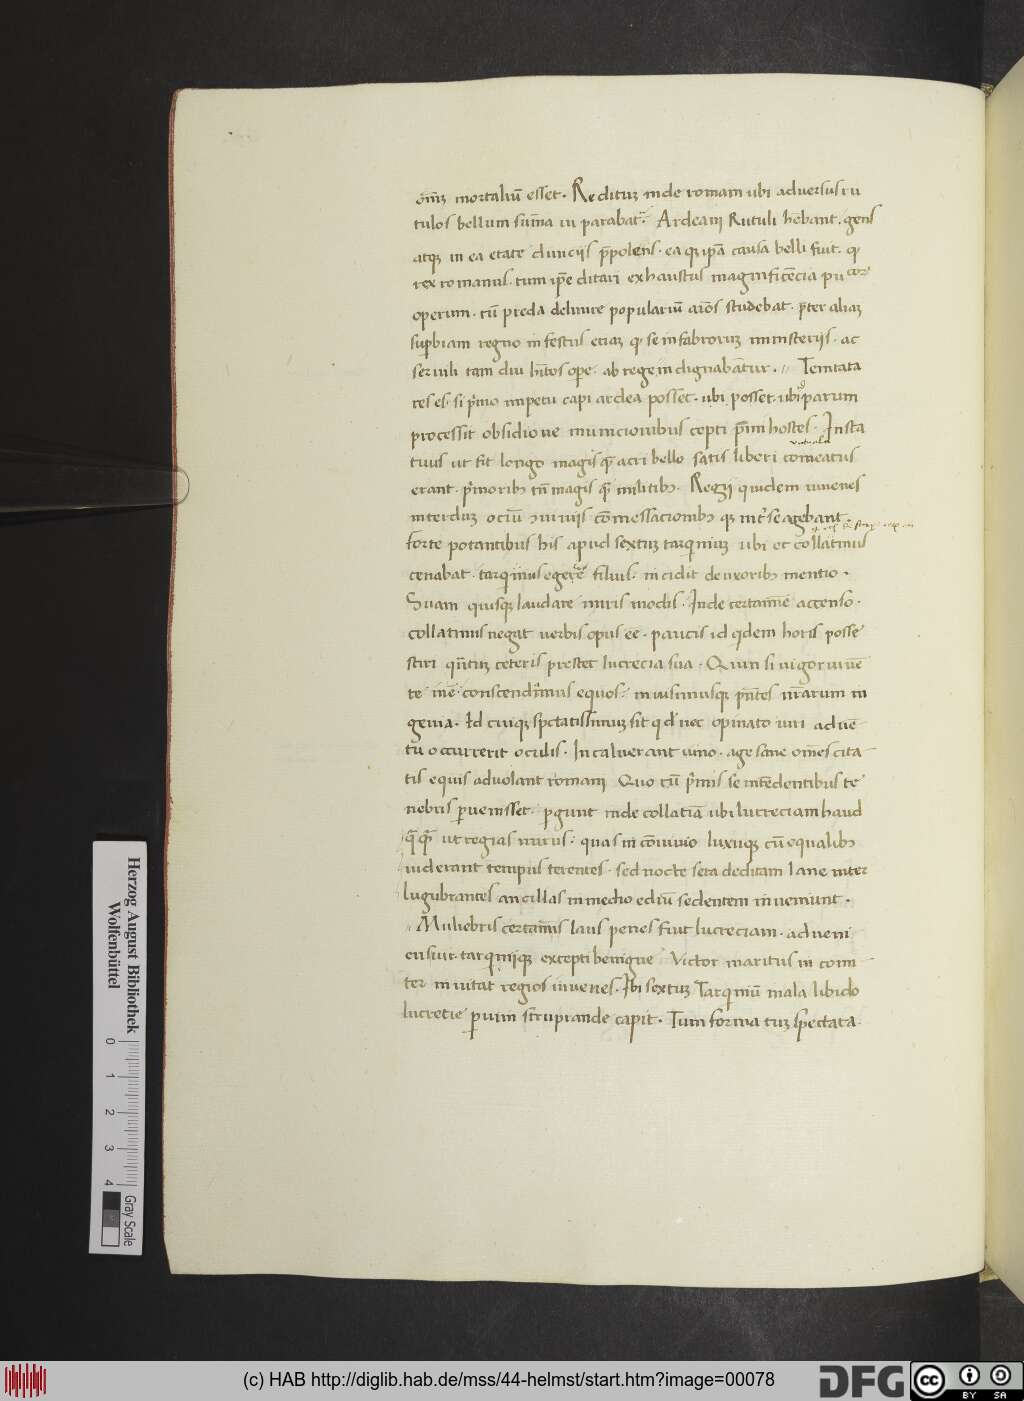 om̄ꝫ mortaliū esset. Reditus inde romam ubi adversus ru
tulos bellum sum̄a ui parabat. Ardeam Rutuli hēbant. gens
atqꝫ in ea etate diuicijs p̄polens. ea qꝫ ip̄a causa belli fuit. qꝫ
rex romanus. tum ip̄e ditari exhaustus magnificēcia pu cor
operum. tū preda delinire populariū aīos studebat. p̄ter aliaꝫ
suꝑbiam regno infestus etiaꝫ qꝫ se in fabroruꝫ ministerijs. ac
seruili tam diu hītos ope. ab rege indignabātur. Temtata
res es. si p̄mo impetu capi ardea posset. ubi posset. ubi parum
processit obsidione municionibus cepti p̄mi hostes. Insta
tiuis ut fit longo magis q̄ acri bello satis liberi comeatus
erant. p̄moribꝫ tn̄ magis q̄ militibꝫ. Regij quidem iuuenes
interduꝫ ociū conuiuijs cōmessacionibꝫ qꝫ int̄ se agebant.
forte potantibus his apud sextuꝫ tarquiniuꝫ ubi et collatinus
cenabat. tarquinius egerie filius. incidit de uxoribꝫ mentio.
Suam quisqꝫ laudare miris modis. Inde certamīe accenso.
collatinus negat uerbis opus eē. paucis id qdem horis posse
sciri qn̄tuꝫ ceteris prestet lucrecia sua. Quin si uigor iuuē
te inē. conscendimus equos. inuisimusqꝫ p̄ntes nr̄arum in
genia. Id cuiqꝫ spectatissimuꝫ sit qd nec opinato uiri aduē
tu occurrerit oculis. Incaluerant uino. age sane om̄es cita
tis equis aduolant romam Quo cū p̄mis se intēdentibus te
nebris ꝑuenisset. ꝑgunt inde collatiā ubi lucreciam haud
q̄q̄ ut regias nurus. quas in cōuiuio luxuqꝫ cū equalibꝫ
uiderant tempus terentes. sed nocte sera deditam lane inter
lugubrantes ancillas in medio ediū sedentem inueniunt.
Muliebris certaminis laus penes fuit lucreciam. adueni
ensuir. tarquinijqꝫ excepti benigne Victor maritus in comi
ter inuitat regios iuuenes. Ibi sextuꝫ Tarquiniū mala libido
lucretie ꝑ uim strupiande capit. Tum forma tuꝫ spectata
Herzog August Bibliothek
Wolfenbüttel
0 1 2 3 4
Gray Scale
(c) HAB http://diglib.hab.de/mss/44-helmst/start.htm?image=00078
DFG
cc BY SA